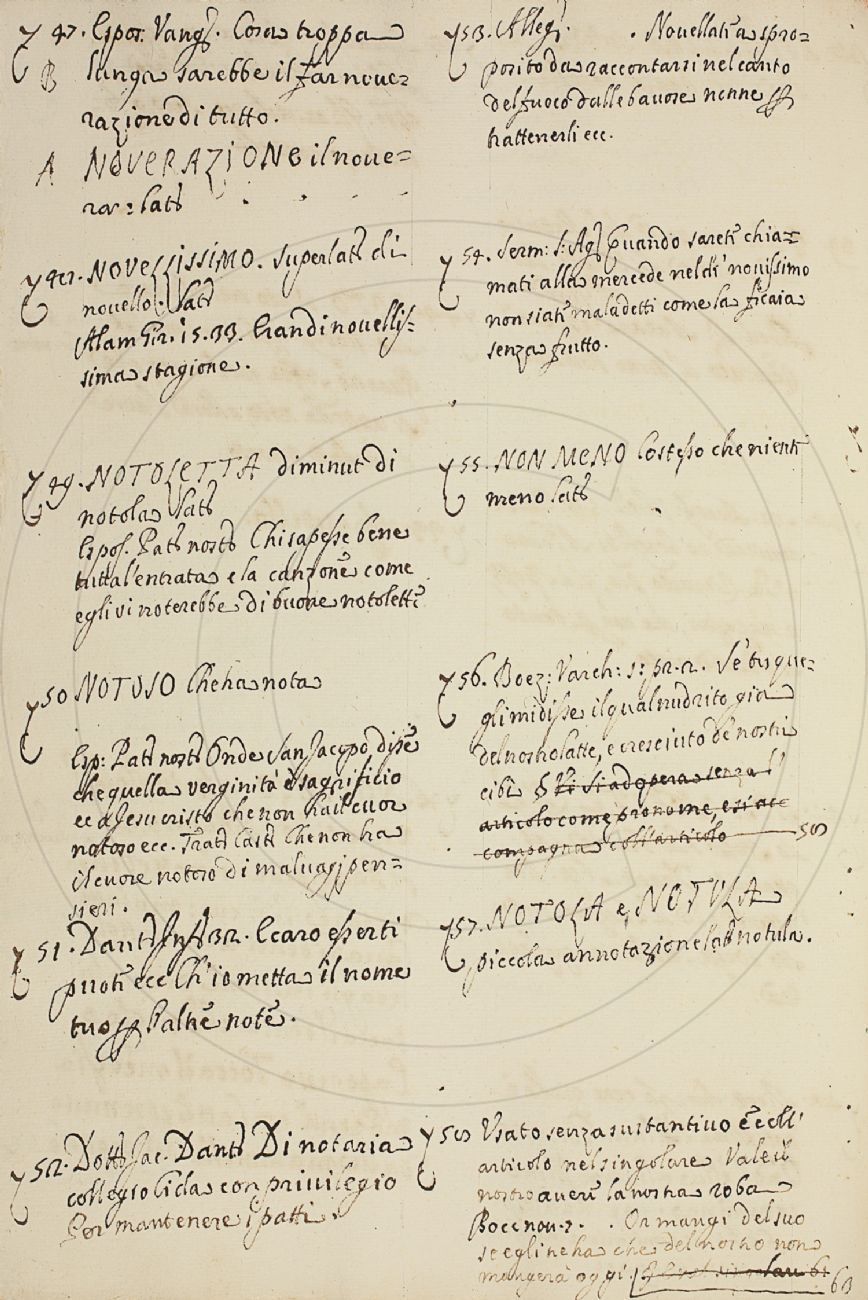 47. Espos. Vang. Cosa troppa
B lunga sarebbe il far nove=
razione di tutto.
A NOVERAZIONE il nove=
rar: lat.
48. NOVELLISSIMO. Superlat. di
novello. lat.
Alam. Gir. 15. 33. E an di novellis-
sima stagione.
49. NOTOLETTA diminut. di
notola lat.
Espos. Pat. nost. Chi sapesse bene
tutta l'entrata e la canzone come
egli vi noterebbe di buone notolette
50 NOTOSO Che ha nota
Esp: Pat. nost. Onde San Jacopo disse
che quella verginità è sagrificio
ec a Jesu cristo che non ha il cuor
notoso ecc. Tratt. Cast. Che non ha
il cuore notoso di malvagi pen=
sieri.
51. Dant. Inf. 32. E caro esserti
puote ecc Ch'io metta il nome
tuo Pall'altre note.
52. Dott. Jac. Dant. Di notaria
collegio Cicla con privilegio
Per mantenere i patti.
53. Alleg. . Novellata a spro=
posito da raccontarsi nel canto
del fuoco dalle bavose nonne
trattenerli ecc.
54. Serm: S. Ag. Quando sarete chia=
mati alla mercede nel dì novissimo
non siate maladetti come la ficaia
senza frutto.
55. NON MENO Lo stesso che niente
meno lat.
56. Boez: Varch: 1: p. 2. 2. Se' tu que=
gli mi disse il qual nudrito già
del nostro latte, e cresciuto de nostri
cibi § Si adopera senza l'
articolo come pronome, e si ac
compagna coll'articolo 58
57. NOTOLA e NOTULA
piccola annotazione lat. notula.
58 Usato senza sustantivo e coll'
articolo nel singolare Vale il
nostro avere la nostra roba
Bocc nov. 2. . On mangi del suo
se egli ne ha che del nostro non
mangerà oggi. 63